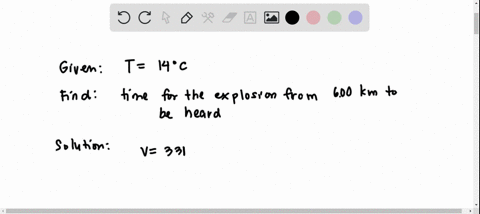 Given: T = 14°C
Find: time for the explosion from 6.00 km to
be heard
Solution: V = 331